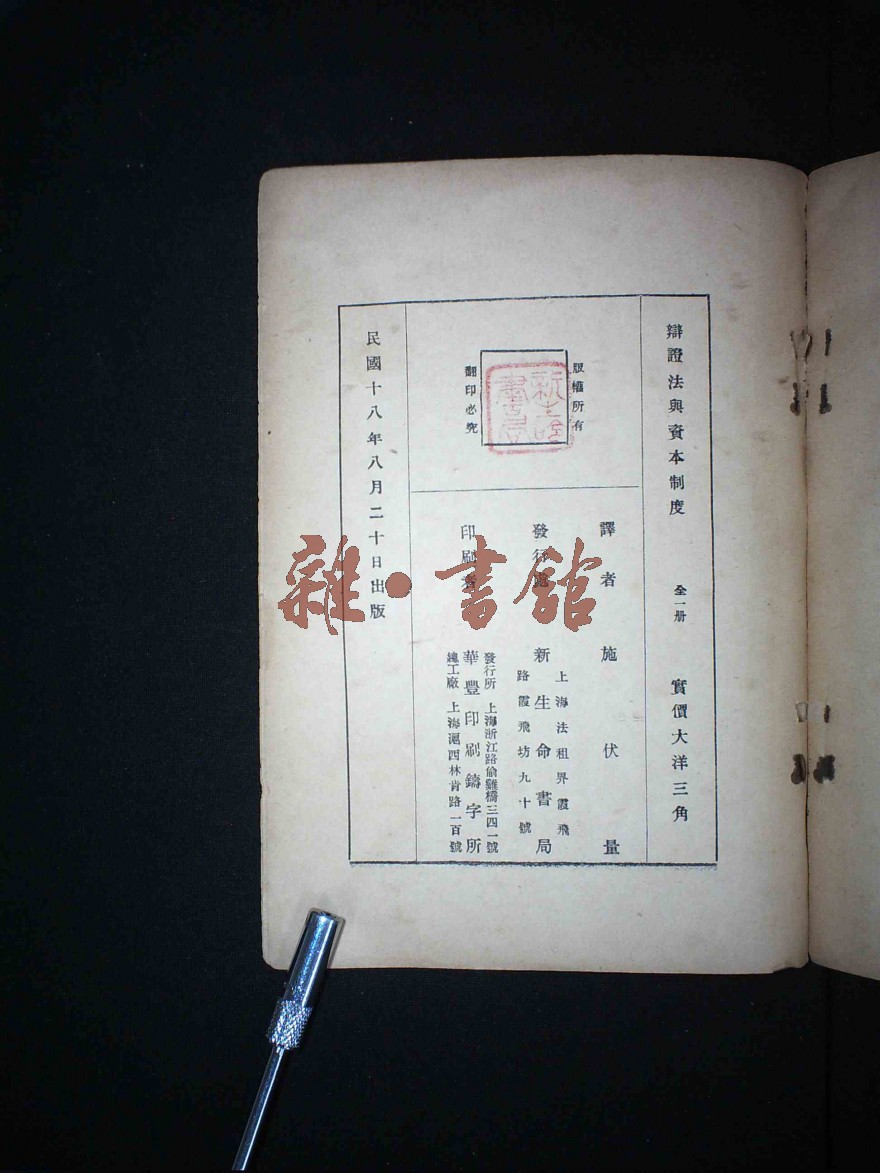 辯證法與資本制度 全一册 實價大洋三角
版權所有
新生命書局
翻印必究
譯者 施伏量
發行處 新生命書局
上海法租界霞飛
路霞飛坊九十號
印刷者 華豐印刷鑄字所
發行所 上海浙江路偷雞橋三四一號
總工廠 上海滬西林肯路一百號
民國十八年八月二十日出版
雜·書館